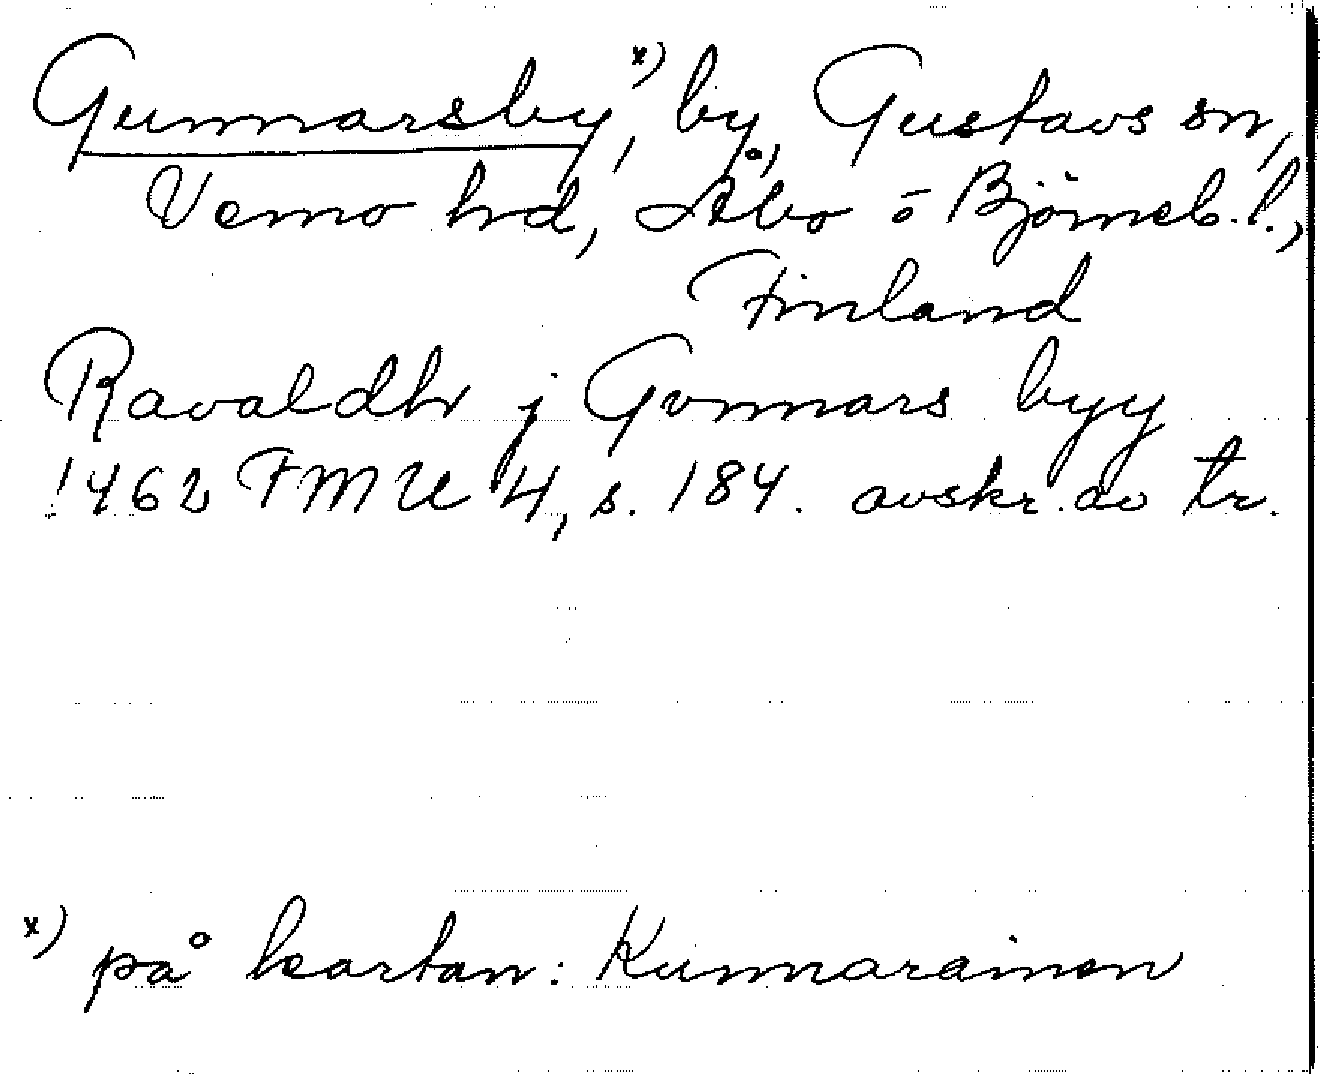 Gunnarsby, x) by, Gustavs sn,
Vemo hd, Åbo o Björneb. l.,
Finland
Ravaldh j Gvnnars byy
1462 FMU 4, s. 184. avskr. av tr.
x) på kartan: Kunnarainen